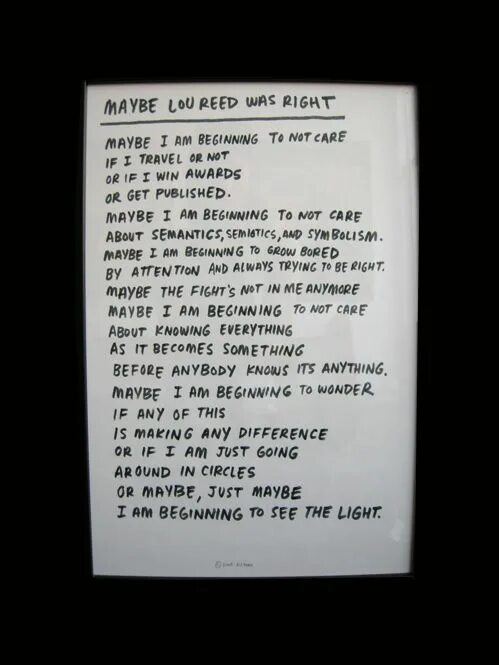 MAYBE LOU REED WAS RIGHT
MAYBE I AM BEGINNING TO NOT CARE
IF I TRAVEL OR NOT
OR IF I WIN AWARDS
OR GET PUBLISHED.
MAYBE I AM BEGINNING TO NOT CARE
ABOUT SEMANTICS, SEMIOTICS, AND SYMBOLISM.
MAYBE I AM BEGINNING TO GROW BORED
BY ATTENTION AND ALWAYS TRYING TO BE RIGHT.
MAYBE THE FIGHT'S NOT IN ME ANYMORE
MAYBE I AM BEGINNING TO NOT CARE
ABOUT KNOWING EVERYTHING
AS IT BECOMES SOMETHING
BEFORE ANYBODY KNOWS ITS ANYTHING.
MAYBE I AM BEGINNING TO WONDER
IF ANY OF THIS
IS MAKING ANY DIFFERENCE
OR IF I AM JUST GOING
AROUND IN CIRCLES
OR MAYBE, JUST MAYBE
I AM BEGINNING TO SEE THE LIGHT.
©